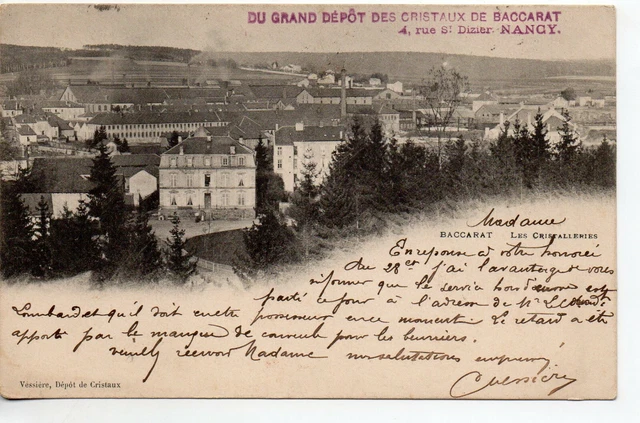 DU GRAND DÉPÔT DES CRISTAUX DE BACCARAT
4, rue St Dizier. NANCY.
Madame
BACCARAT LES CRISTALLERIES
En reponse à votre honorée
du 28 ce j'ai l'avantage de vous
informer que le service bordeaux est
parti ce jour à l'adresse de Mr
Lombard et qu'il doit en etre possesseur en ce moment. Le retard a été
apporté par le manque de couvercle pour les beurriers.
Veuillez recevoir Madame mes salutations empressées
Vessière
Vessière, Dépôt de Cristaux